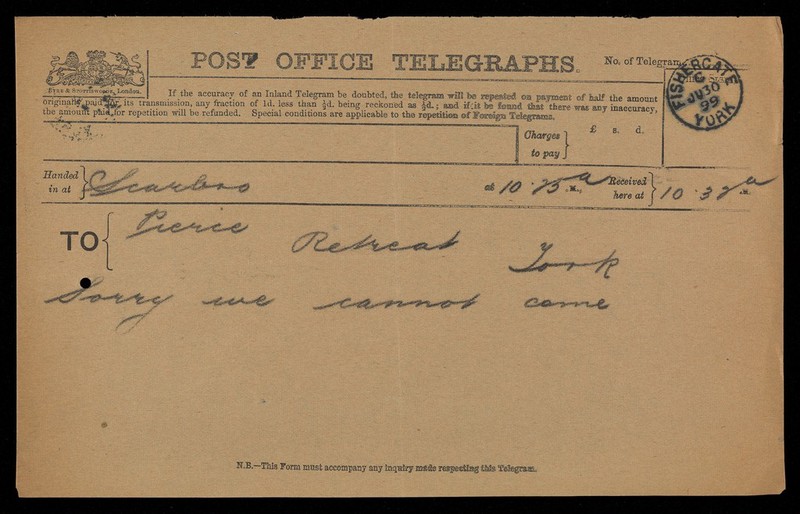 POST OFFICE TELEGRAPHS.
No. of Telegram
Eyre & Spottiswoode, London.
If the accuracy of an Inland Telegram be doubted, the telegram will be repeated on payment of half the amount
originally paid for its transmission, any fraction of 1d. less than ½d. being reckoned as ½d.; and if it be found that there was any inaccuracy,
the amount paid for repetition will be refunded. Special conditions are applicable to the repetition of Foreign Telegrams.
FISHERGATE
C
JU 30
99
YORK
Charges to pay £ s. d.
Handed in at Scarbro at 10.25 a M., Received here at 10.32 a M.
TO Pierce Retreat York
Sorry we cannot come
N.B.—This Form must accompany any inquiry made respecting this Telegram.